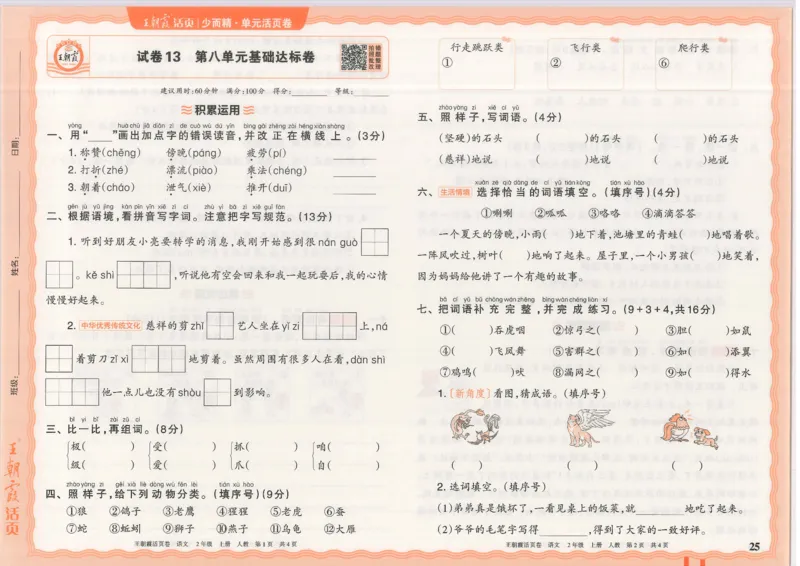 王朝霞 活页 少而精·单元活页卷
王朝霞
试卷13 第八单元基础达标卷
建议用时:60分钟 满分:100分 得分:______ 等级:______
积累运用
yòng huà chū jiā diǎn zì de cuò wù dú yīn bìng gǎi zhèng zài héng xiàn shàng
一、用“____”画出加点字的错误读音,并改正在横线上。(3分)
1. 称赞(chēng) 傍晚(páng) 疲劳(pí) ______
2. 打折(zhé) 漂流(piào) 乘法(chéng) ______
3. 朝着(cháo) 泄气(xiè) 推开(duī) ______
gēn jù yǔ jìng kàn pīn yīn xiě zì cí zhù yì bǎ zì xiě guī fàn
二、根据语境,看拼音写字词。注意把字写规范。(13分)
1. 听到好朋友小亮要转学的消息,我刚开始感到很 nán guò
。kě shì ,听说他有空会回来和我一起玩耍后,我的心情
慢慢好起来。
2. 中华优秀传统文化 慈祥的剪 zhǐ 艺人坐在 yǐ zi 上,ná
着剪刀 zǐ xì 地剪着。虽然周围有很多人在看,dàn shì
他一点儿也没有 shòu 到影响。
bǐ yi bǐ zài zǔ cí
三、比一比,再组词。(8分)
极( ) 受( ) 抓( ) 咱( )
级( ) 爱( ) 爪( ) 自( )
zhào yàng zi gěi xià liè dòng wù fēn lèi tián xù hào
四、照样子,给下列动物分类。(填序号)(9分)
①狼 ②鸽子 ③老鹰 ④猩猩 ⑤老虎 ⑥蚕
⑦蛇 ⑧蚯蚓 ⑨狮子 ⑩燕子 ⑪乌龟 ⑫大雁
王朝霞活页卷 语文 2年级 上册 人教 第1页 共4页
行走跳跃类 飞行类 爬行类
① ② ⑥
zhào yàng zi xiě cí yǔ
五、照样子,写词语。(4分)
(坚硬)的石头 ( )的石头 ( )的石头
(慈祥)地说 ( )地说 ( )地说
xuǎn zé qià dàng de cí yǔ tián kòng tián xù hào
六、生活情境 选择恰当的词语填空。(填序号)(4分)
①唰唰 ②呱呱 ③咯咯 ④滴滴答答
一个夏天的傍晚,小雨( )地下着,池塘里的青蛙( )地唱着歌。
一阵风吹过,树叶( )地响了起来。屋子里,一个小男孩( )地笑着,
因为妈妈给他讲了一个有趣的故事。
bǎ cí yǔ bǔ chōng wán zhěng bìng wán chéng liàn xí
七、把词语补充完整,并完成练习。(9+3+4,共16分)
①( )吞虎咽 ②惊弓之( ) ③胆( )如鼠
④( )飞凤舞 ⑤害群之( ) ⑥如( )添翼
⑦鸦鸣( )吠 ⑧漏网之( ) ⑨如( )得水
1. [新角度]看图,猜成语。(填序号)
( ) ( ) ( )
2. 选词填空。(填序号)
(1)弟弟真是饿坏了,一看见桌上的饭菜,就______地吃了起来。
(2)爷爷的毛笔字写得______,得到了大家的一致好评。
王朝霞活页卷 语文 2年级 上册 人教 第2页 共4页
25
日期:
姓名:
班级:
王朝霞活页